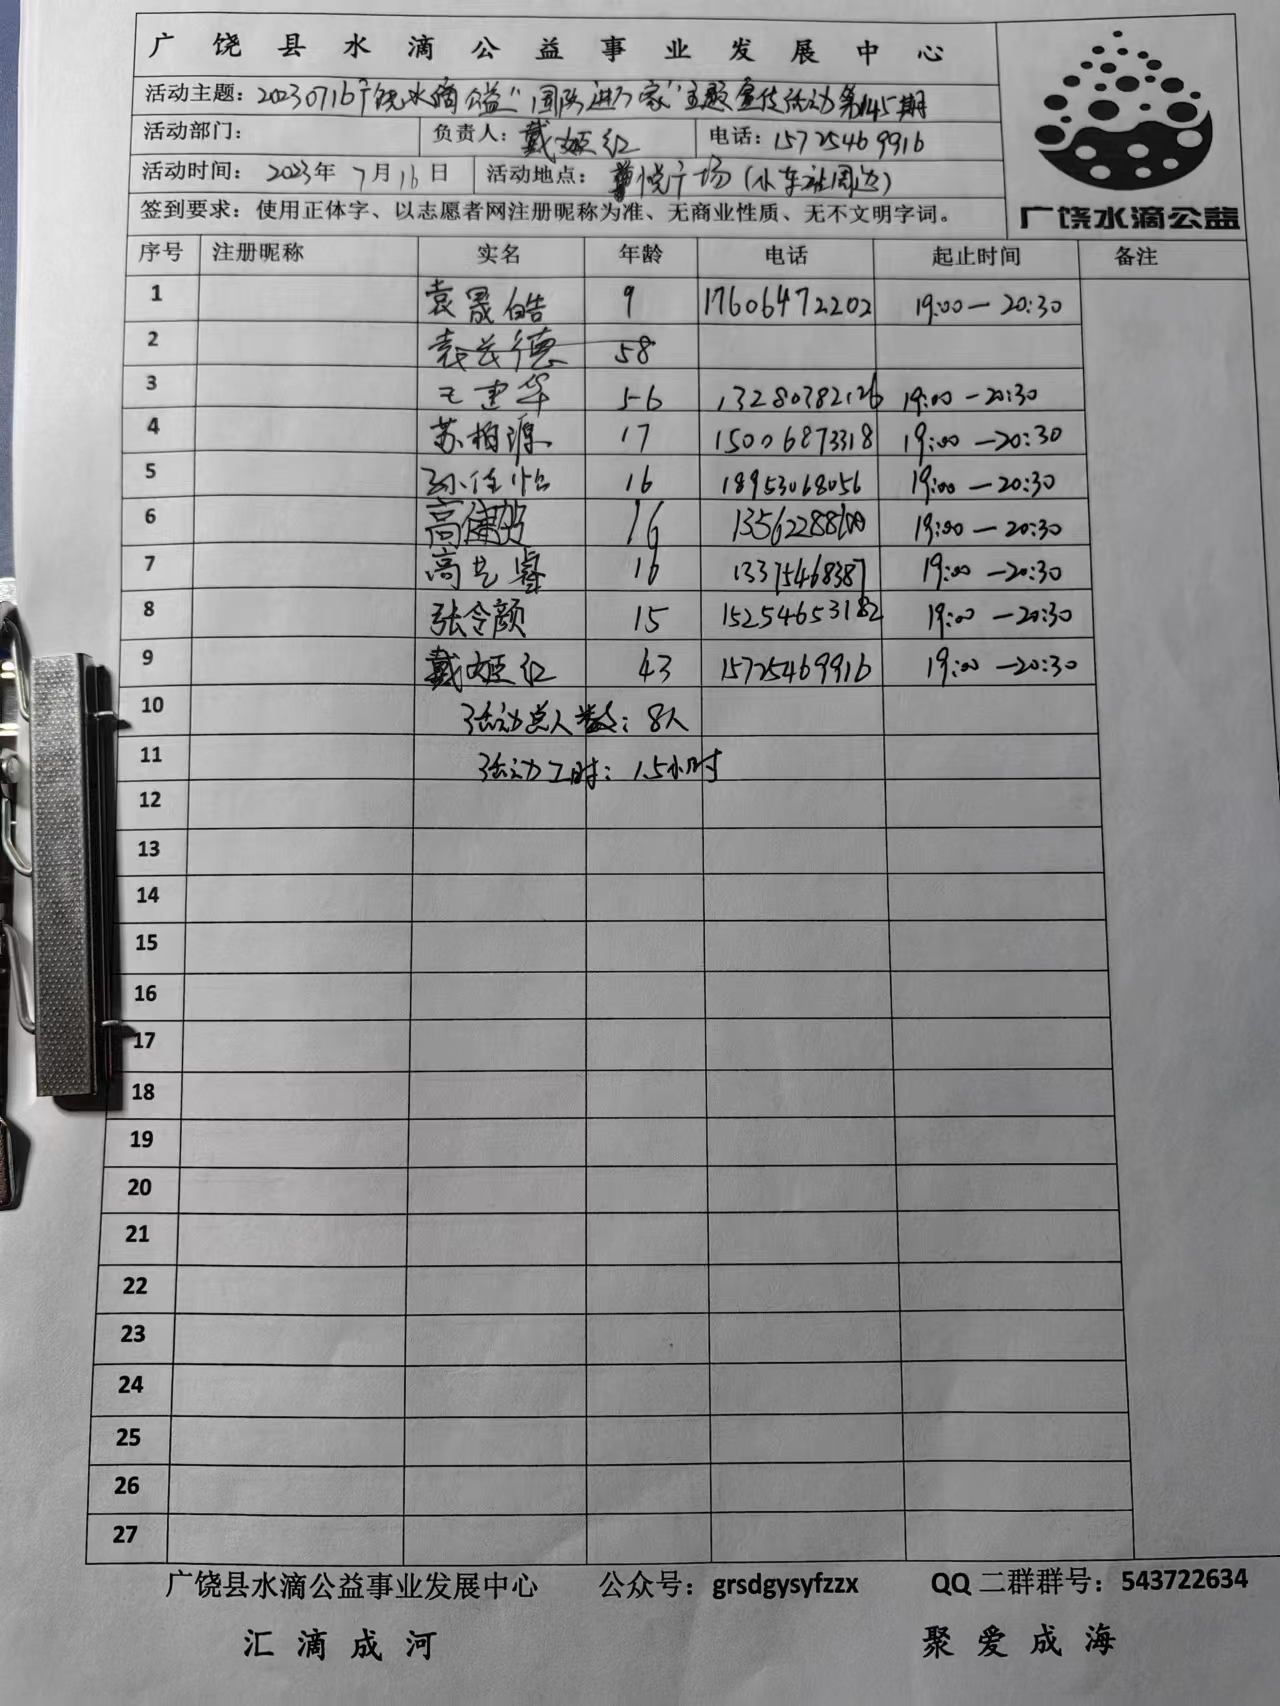 广饶县水滴公益事业发展中心
活动主题：20230716广饶水滴公益"团队进万家"主题宣传活动第145期
活动部门： 负责人：戴姬红 电话：15725469916
活动时间：2023年7月16日 活动地点：悦广场(小车站周边)
签到要求：使用正体字、以志愿者网注册昵称为准、无商业性质、无不文明字词。
广饶水滴公益
序号 注册昵称 实名 年龄 电话 起止时间 备注
1 袁晟皓 9 17606472202 19:00—20:30
2 袁兰德 58
3 王建华 56 13280382126 19:00—20:30
4 苏柏源 17 15006873318 19:00—20:30
5 孙佳怡 16 18953068056 19:00—20:30
6 高健 16 19:00—20:30
7 高艺睿 16 13375468387 19:00—20:30
8 张令颜 15 15254653182 19:00—20:30
9 戴姬红 43 15725469916 19:00—20:30
10 活动总人数：8人
11 活动工时：1.5小时
12
13
14
15
16
17
18
19
20
21
22
23
24
25
26
27
广饶县水滴公益事业发展中心 公众号：grsdgysyfzzx QQ二群群号：543722634
汇滴成河 聚爱成海